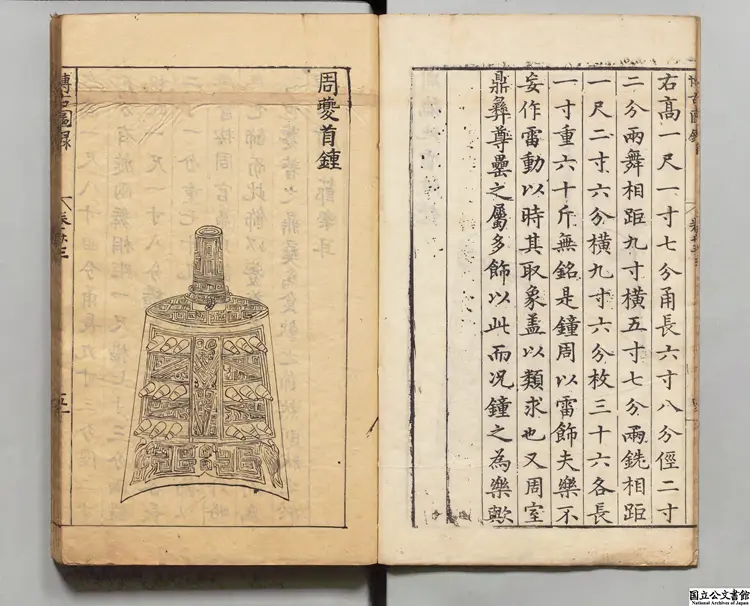 右高一尺一寸七分甬長六寸八分徑二寸
二分兩舞相距九寸橫五寸七分兩銑相距
一尺二寸六分橫九寸六分枚三十六各長
一寸重六十斤無銘是鐘周以雷飾夫樂不
妄作雷動以時其取象蓋以類求也又周室
鼎彝尊罍之屬多飾以此而况鐘之為樂歟
周夔首鐘
博古圖錄
國立公文書館
National Archives of Japan